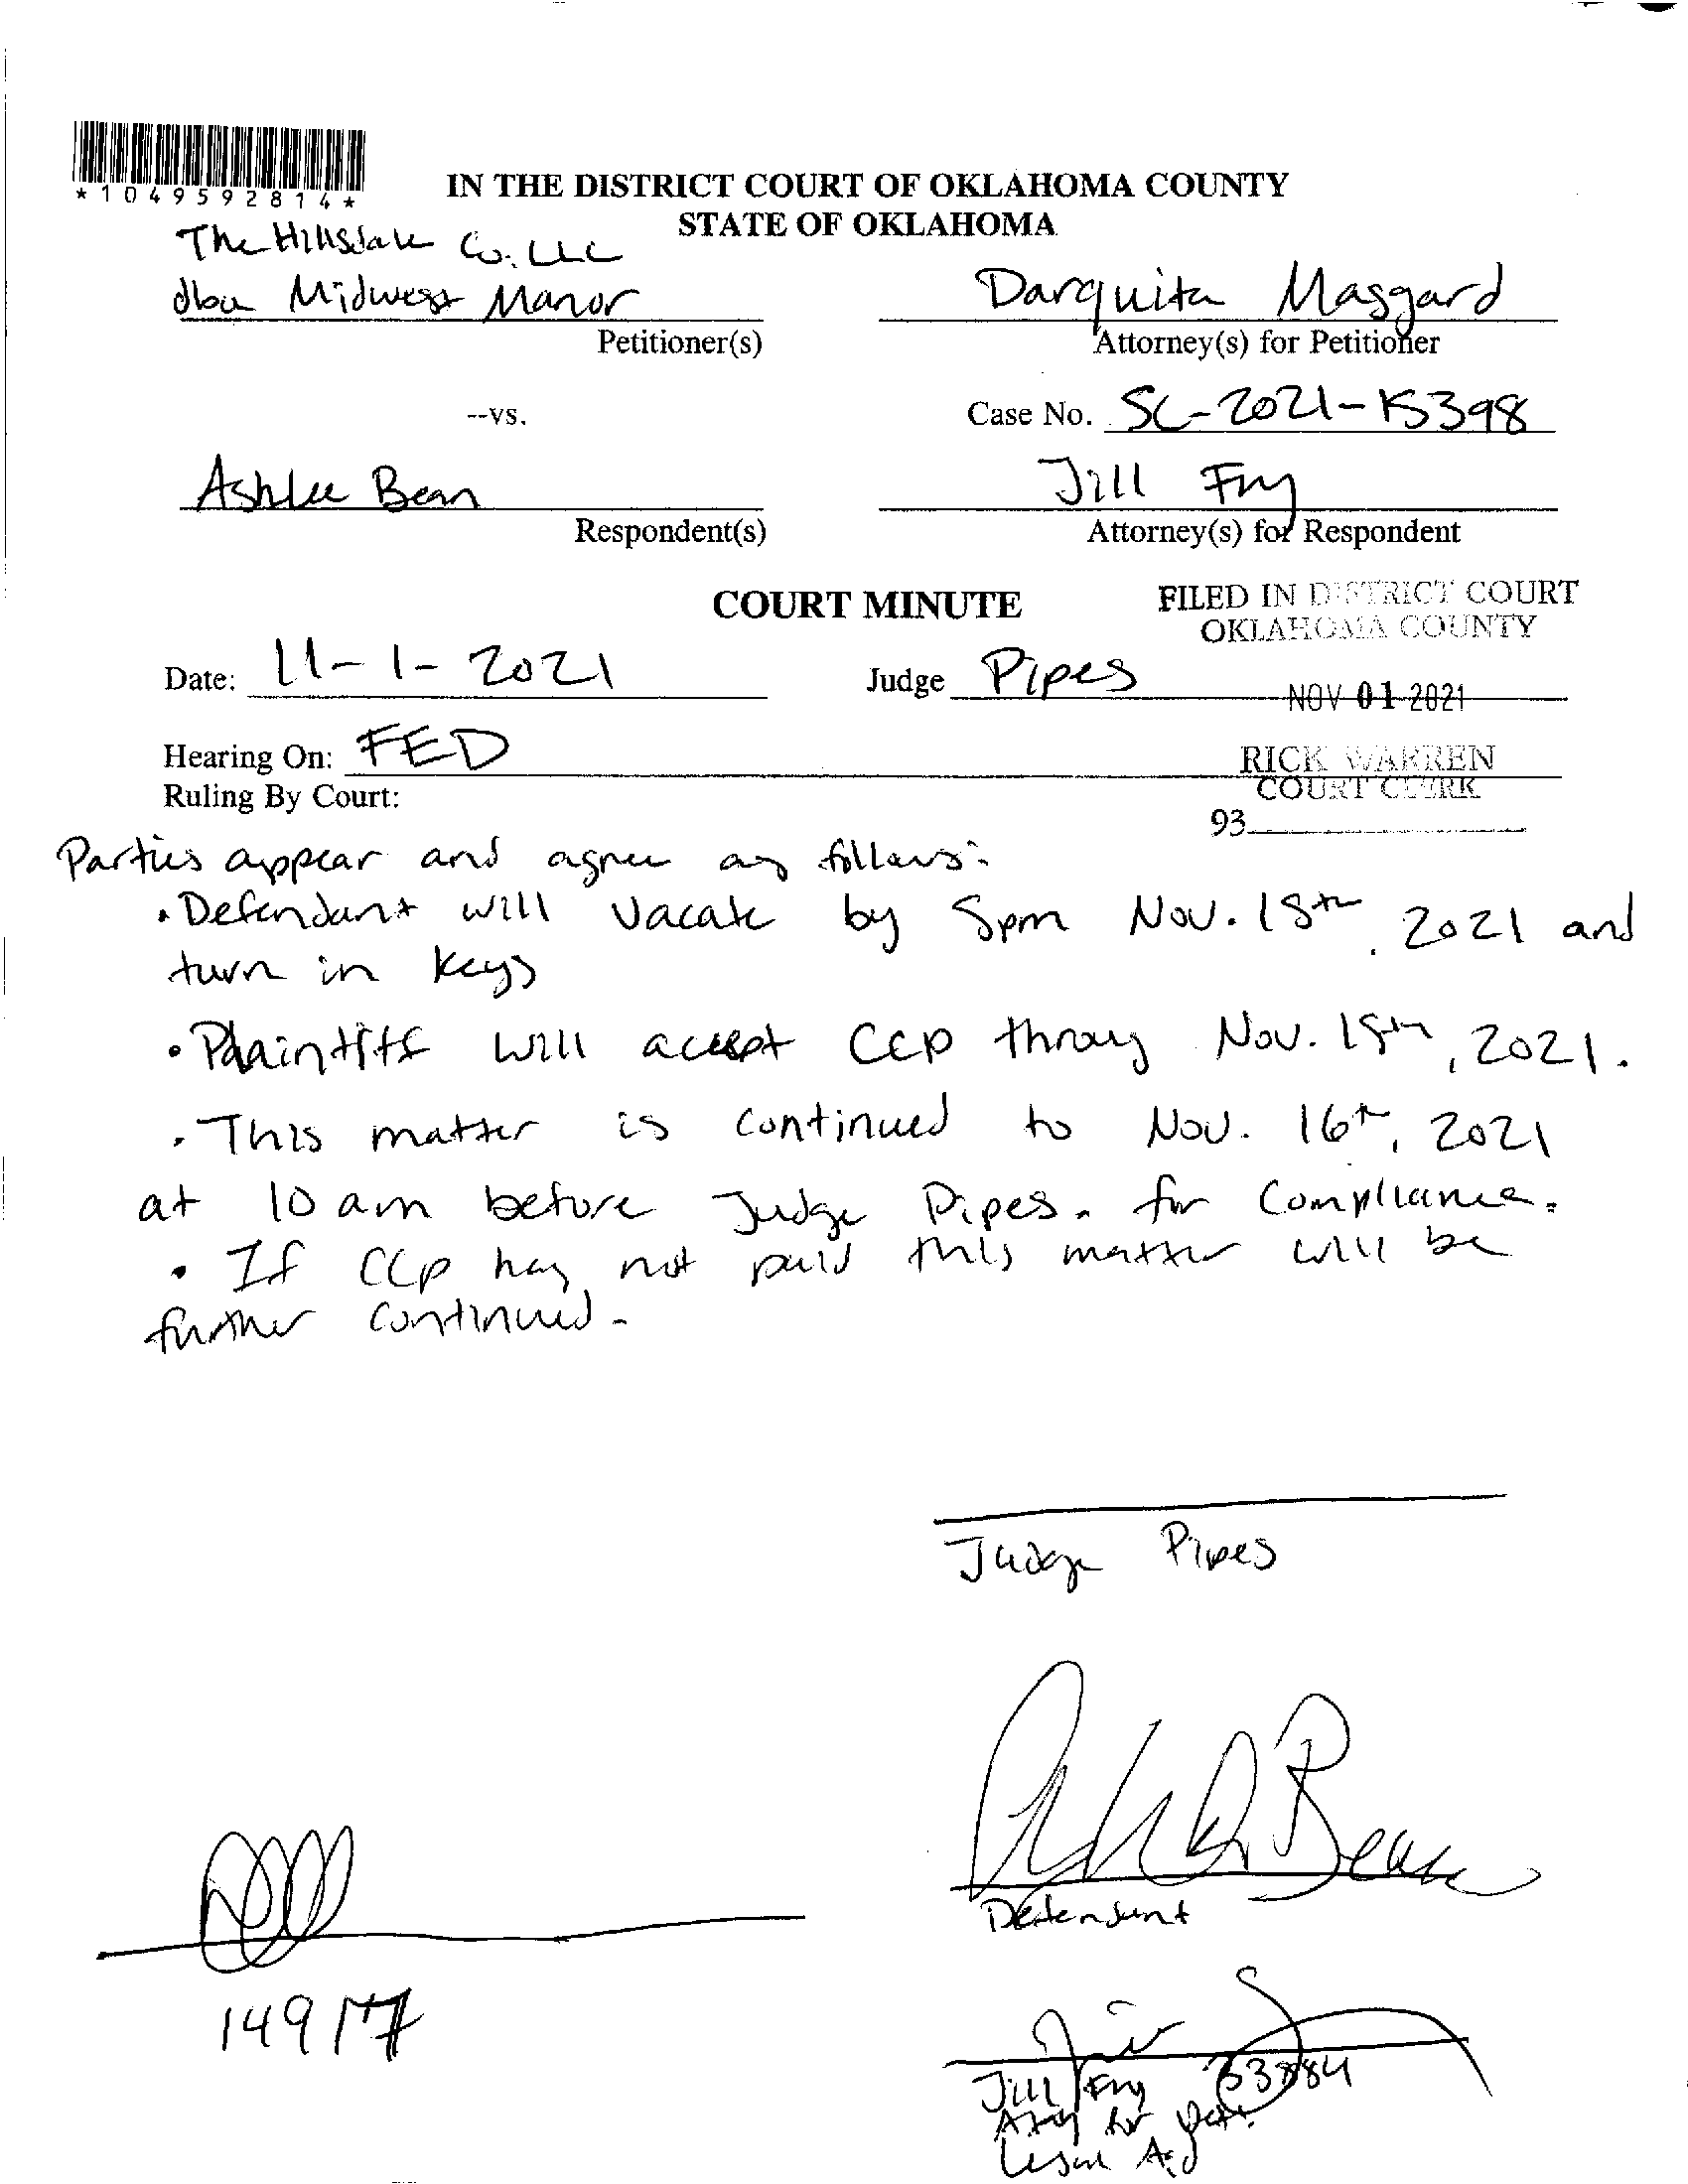 *1049592814*
IN THE DISTRICT COURT OF OKLAHOMA COUNTY
STATE OF OKLAHOMA
The Hillsdale Co. LLC
dba Midwest Manor
Petitioner(s)
Darquita Maggard
Attorney(s) for Petitioner
--vs.
Case No. SC-2021-15398
Ashlee Bean
Respondent(s)
Jill Fry
Attorney(s) for Respondent
COURT MINUTE
FILED IN DISTRICT COURT
OKLAHOMA COUNTY
Date: 11-1-2021
Judge Pipes
NOV 01 2021
Hearing On: FED
RICK WARREN
COURT CLERK
Ruling By Court:
93
Parties appear and agree as follows:
• Defendant will vacate by 5pm Nov. 15th, 2021 and
turn in keys
• Plaintiff will accept CCP throug Nov. 15th, 2021.
• This matter is continued to Nov. 16th, 2021
at 10 am before Judge Pipes. for Compliance.
• If CCP has not paid this matter will be
further continued.
Judge Pipes
Bean
Defendant
Jill Fry
Atty for Def.
Legal Aid